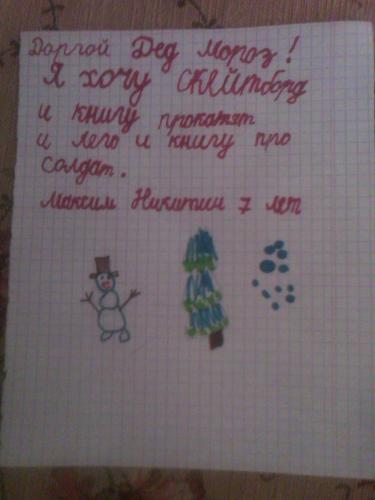 Даргой Дед Мороз!
Я хочу скейтборд
и книгу прокатят
и лего и книгу про
солдат.
Максим Никитин 7 лет